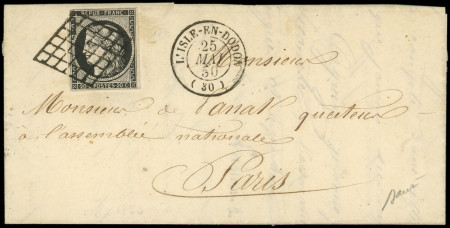 REPUB. FRANC.
20 c. POSTES 20 c.
L'ISLE-EN-DODON
25
MAI
50
(30)
Monsieur
Monsieur de Panat questeur
à l'assemblée nationale
Paris